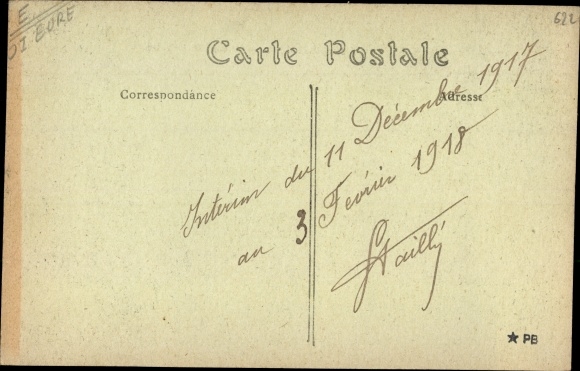 E
EURE
622
Carte Postale
Correspondance
Adresse
Intérim du 11 Décembre 1917
au 3 Février 1918
★ PB